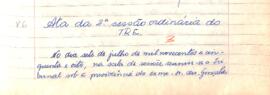 Ata da 2ª sessão ordinária do
TRE.
2
No dia sete de julho de mil novecentos e cin-
quenta e oito, na sala de sessões reuniu-se o Tri-
bunal sob a presidência do exmo. sr. des. Gonzalo